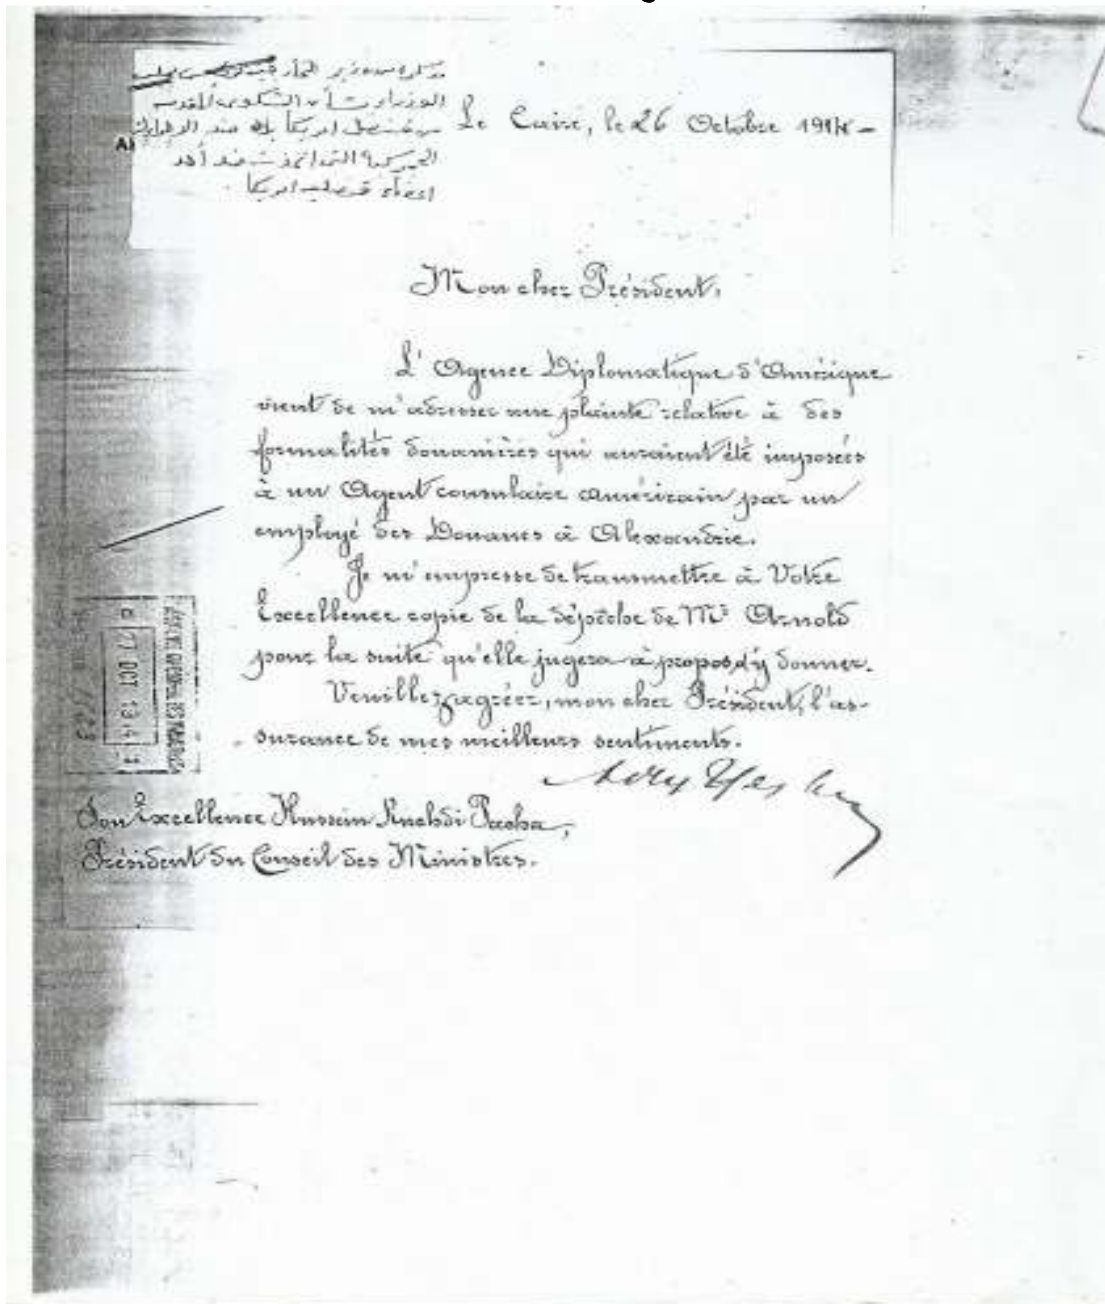 مذكرة من وزير الخارجية
الوزراء بشأن الشكوى المقدمة
من قنصل امريكا
الجمركية التى اتخذت ضد أحد
اعضاء قنصلية امريكا .
Le Caire, le 26 Octobre 1914 -
Mon cher Président,
L'Agence Diplomatique d'Amérique
vient de m'adresser une plainte relative à des
formalités douanières qui auraient été imposées
à un Agent consulaire américain par un
employé des Douanes à Alexandrie.
Je m'empresse de transmettre à Votre
Excellence copie de la dépêche de Mr Arnold
pour la suite qu'elle jugera à propos d'y donner.
Veuillez agréer, mon cher Président, l'as-
surance de mes meilleurs sentiments.
Son Excellence Hussein Ruchdi Pacha,
Président du Conseil des Ministres.
OCT